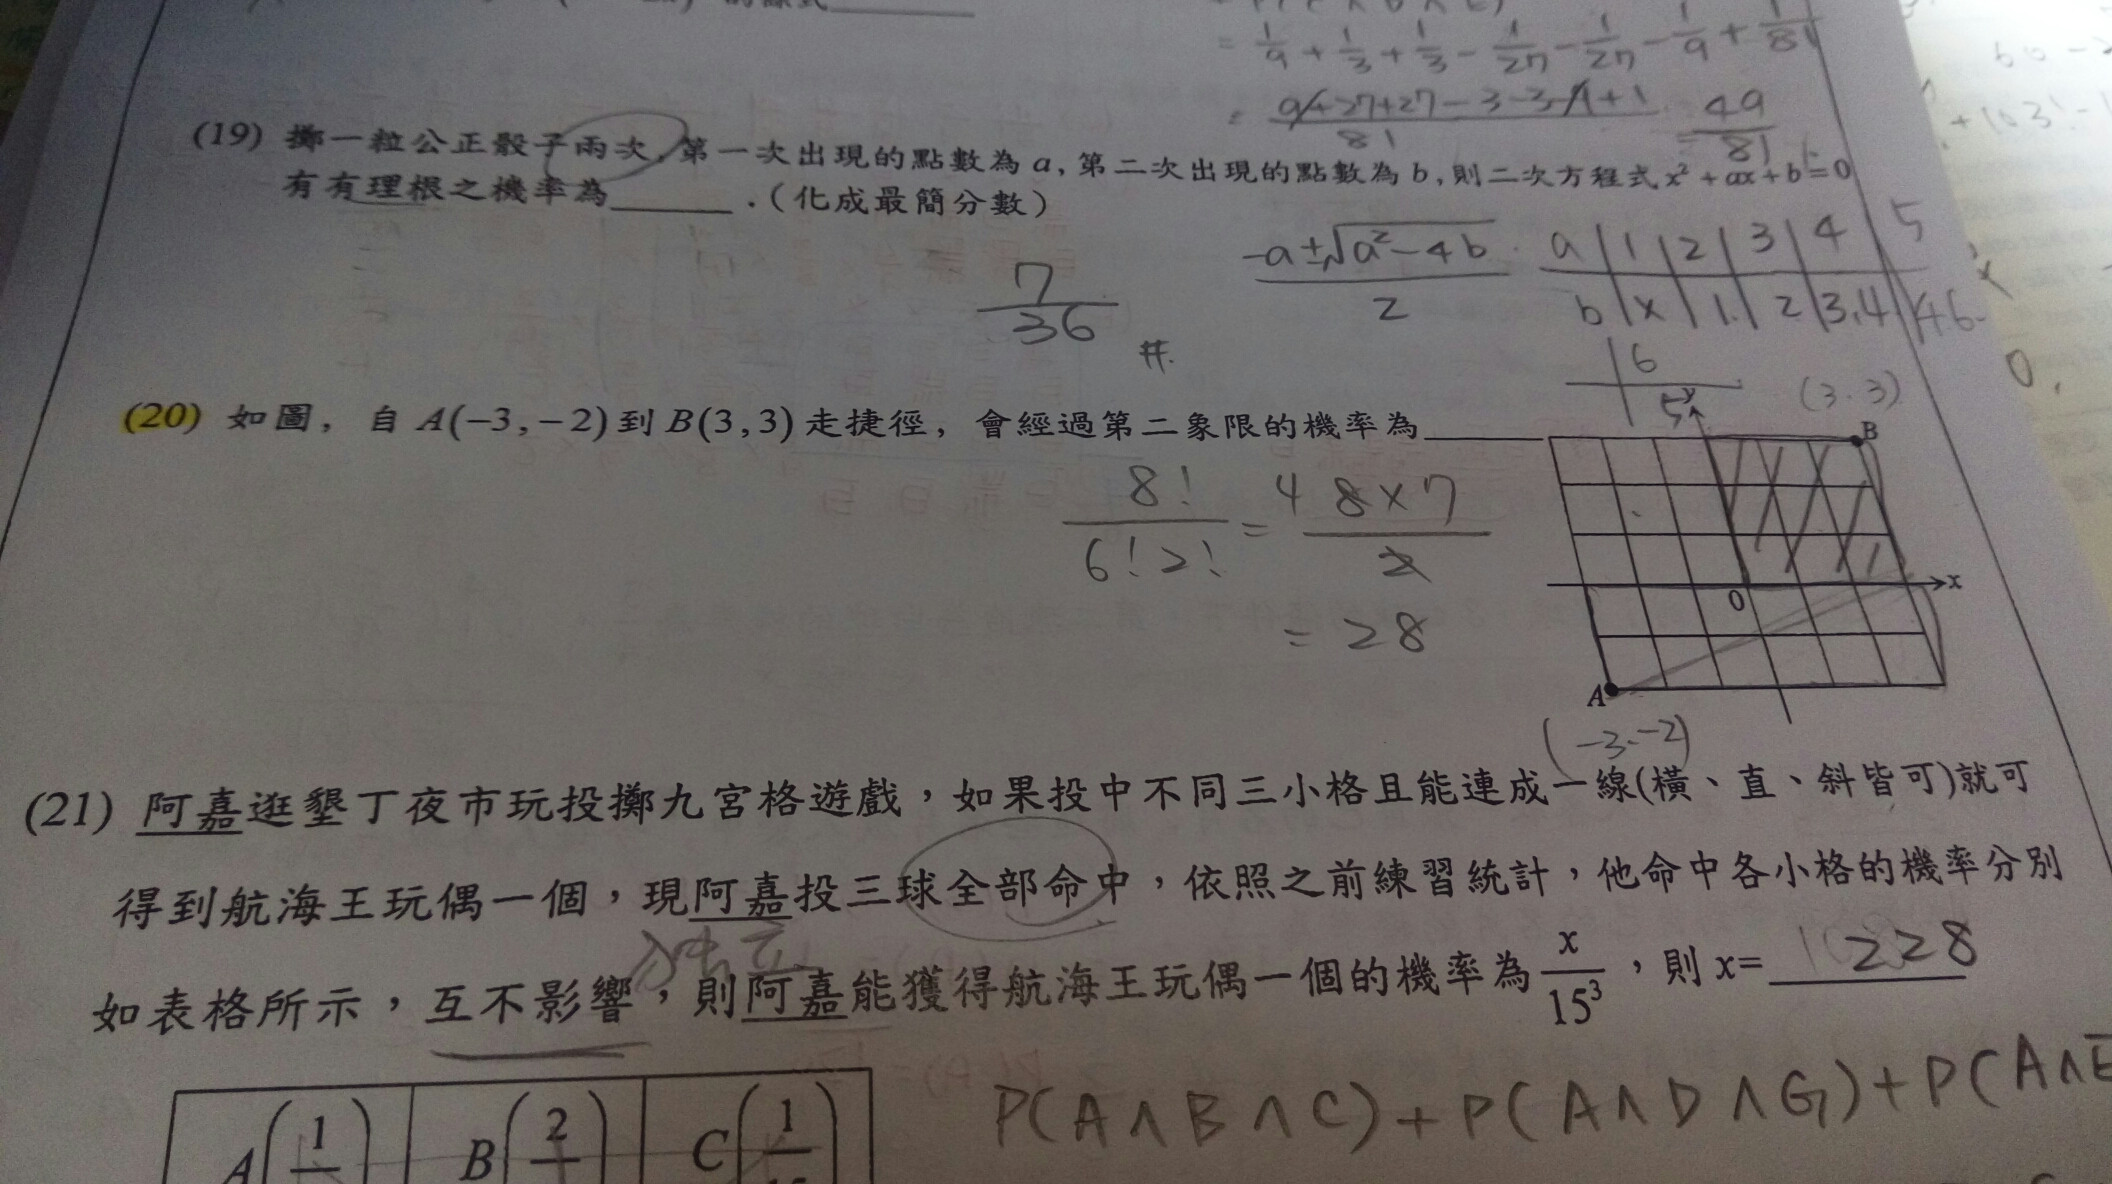 = 1/9 + 1/3 + 1/3 - 1/27 - 1/27 - 1/9 + 1/81
= 9+27+27-3-3-9+1 / 81 = 49/81
(19) 擲一粒公正骰子兩次, 第一次出現的點數為 a, 第二次出現的點數為 b, 則二次方程式 x² + ax + b = 0
有有理根之機率為______.(化成最簡分數)
7/36 #.
-a±√a²-4b / 2
a 1 2 3 4 5
b x 1. 2 3.4 4.6
6
5
(20) 如圖, 自 A(-3, -2) 到 B(3, 3) 走捷徑, 會經過第二象限的機率為______
8! / 6!2! = 4 8×7 / 2
= 28
(3.3)
y
B
x
0
A
(-3.-2)
(21) 阿嘉逛墾丁夜市玩投擲九宮格遊戲，如果投中不同三小格且能連成一線(橫、直、斜皆可)就可
得到航海王玩偶一個，現阿嘉投三球全部命中，依照之前練習統計，他命中各小格的機率分別
如表格所示，互不影響，則阿嘉能獲得航海王玩偶一個的機率為 x/15³，則 x= 228
A(1 B(2 C(1
P(A∧B∧C)+P(A∧D∧G)+P(A∧E